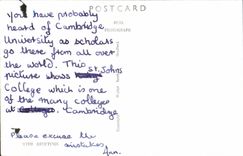 POSTCARD
You have probably
heard of Cambridge
University as scholars
go there from all over
the world. This
picture shows St. Johns
College which is one
of the many colleges
at Cambridge
Please excuse the
mistakes